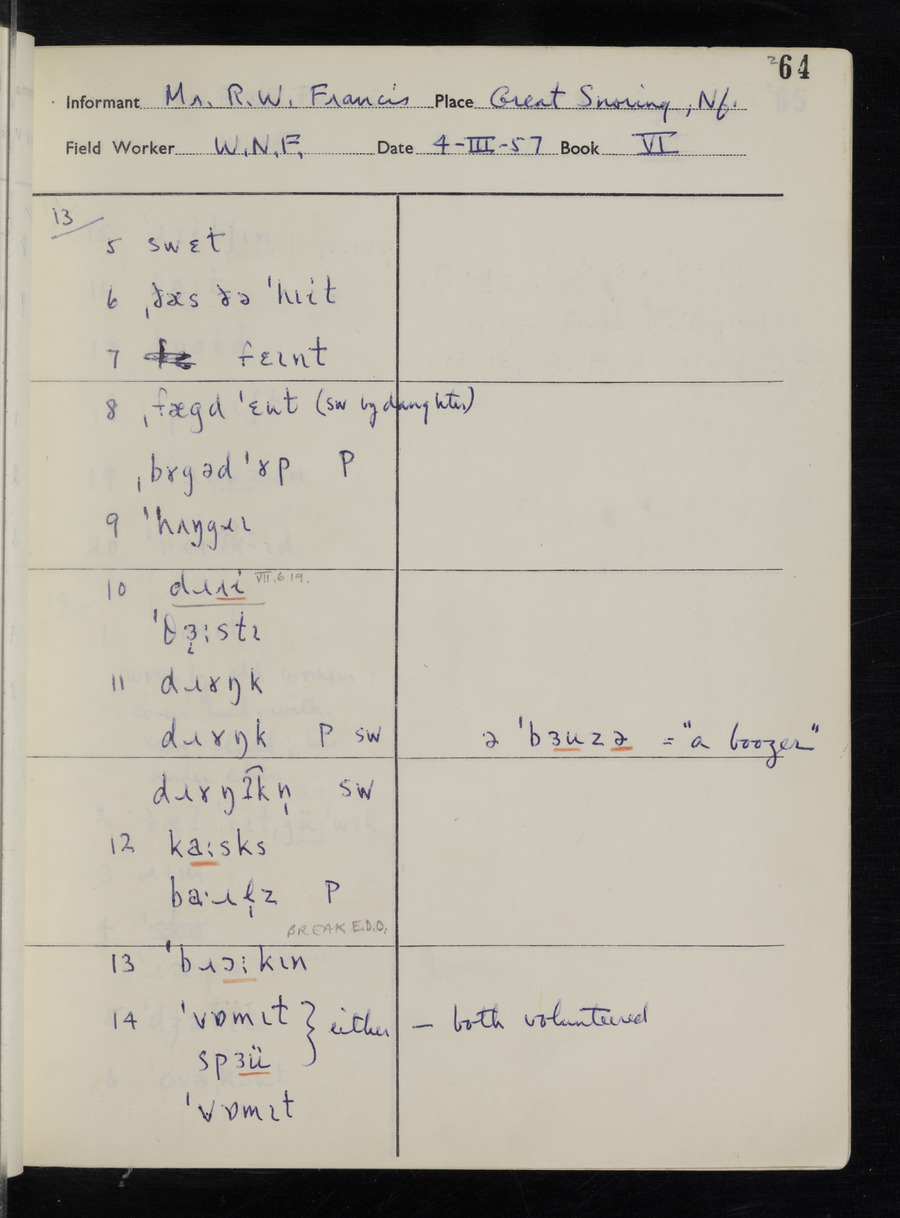 264
Informant Mr. R.W. Francis Place Great Snoring, Nf.
Field Worker W.N.F. Date 4-III-57 Book VI
13/
5 swɛt
6 ˌðæs ðə ˈhɪit
7 fɛɪnt
8 ˌfægd ˈɛut (sw by daughter)
ˌbɤgəd ˈɤp P
9 ˈhʌŋgɹɪ
10 dɹʌi VII.6.19.
ˈθɜ̣ːstɪ
11 dɹɤŋk
dɹɤŋk P sw ə ˈbɜuzə = "a boozer"
dɹɤŋʔ͡kn̩ sw
12 kaːsks
baˑɹɫ̩z P
BREAK E.D.D.
13 ˈbɹɔːkɪn
14 ˈvɒmɪt } either — both volunteered
spɜü
ˈvɒmɪt